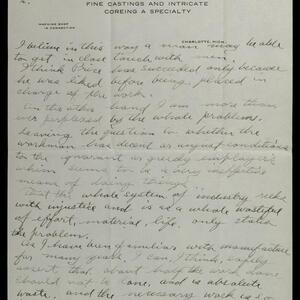 2.
FINE CASTINGS AND INTRICATE
COREING A SPECIALTY
MACHINE SHOP
IN CONNECTION
CHARLOTTE, MICH.
I believe in this way a man may be able
to get in close touch with men.
I think Price has succeeded only because
he was liked before being placed in
charge of the work.
On the other hand I am more than
ever perplexed by the whole problem.
leaving the question to whether the
workman has decent or unjust conditions
to the ignorant or greedy employer's
whim seems to be a very
means of doing things.
That the whole system of industry reeks
with injustice and is a whole wasteful
of effort, material, life, only states
the problem.
As I have been familiar with manufacture
for many years, I can, I think, safely
assert that about half the work done
should not be done, and is absolute
waste, and the necessary work is